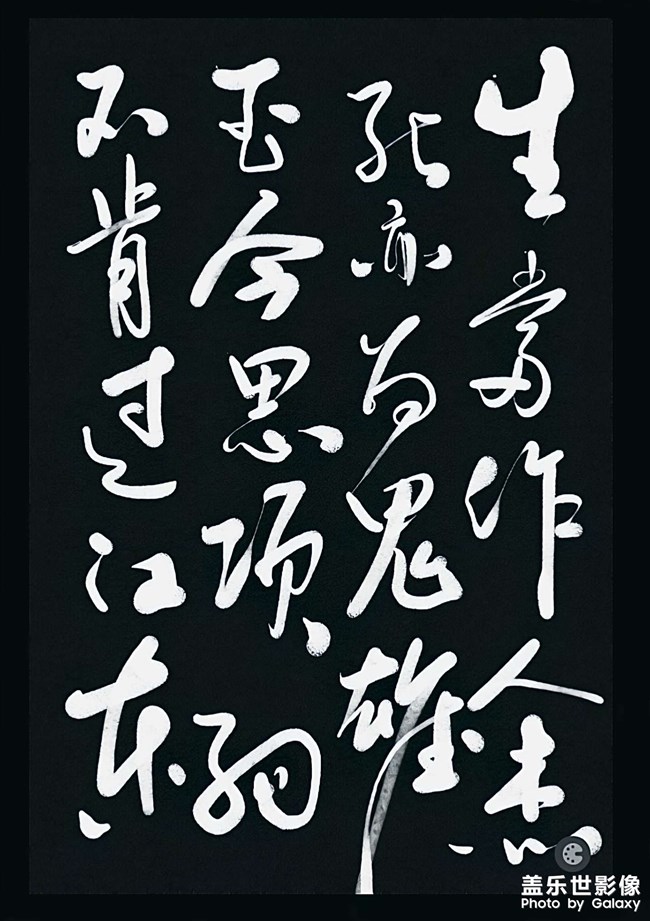 生當作人杰
死亦为鬼雄
至今思项羽
不肯过江东
盖乐世影像
Photo by Galaxy